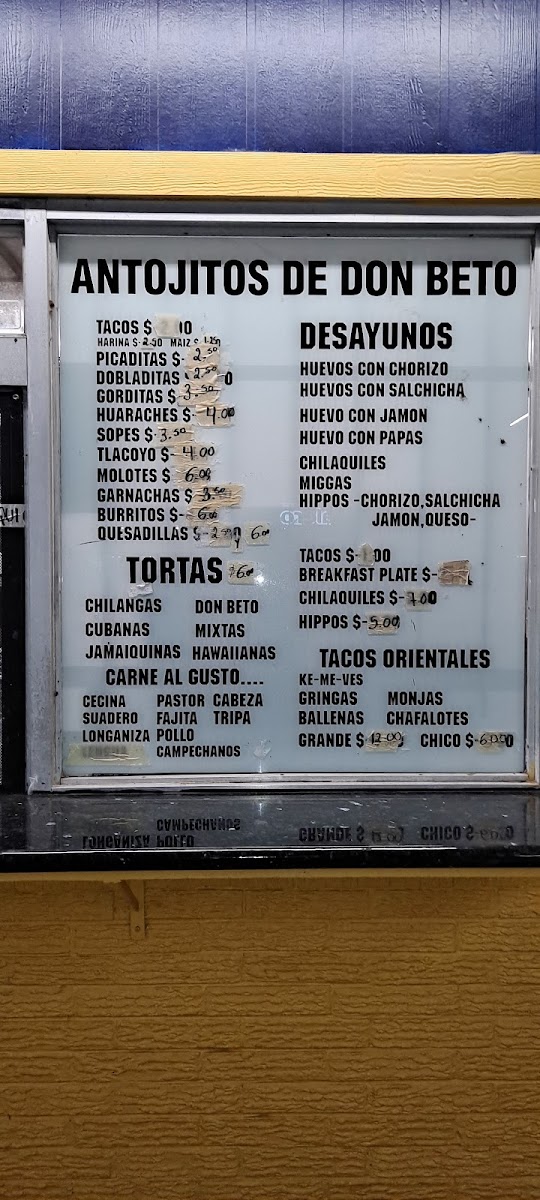 ANTOJITOS DE DON BETO
TACOS $
HARINA $-2.50 MAIZ $ 1.25
PICADITAS $-2.50
DOBLADITAS 2.50
GORDITAS $-3.50
HUARACHES $-4.00
SOPES $-3.50
TLACOYO $-4.00
MOLOTES $-6.00
GARNACHAS $ 3.50
BURRITOS $-6.00
QUESADILLAS $- 6.00
TORTAS 6.00
CHILANGAS DON BETO
CUBANAS MIXTAS
JAMAIQUINAS HAWAIIANAS
CARNE AL GUSTO....
CECINA PASTOR CABEZA
SUADERO FAJITA TRIPA
LONGANIZA POLLO
LENGUA CAMPECHANOS
DESAYUNOS
HUEVOS CON CHORIZO
HUEVOS CON SALCHICHA
HUEVO CON JAMON
HUEVO CON PAPAS
CHILAQUILES
MIGGAS
HIPPOS -CHORIZO,SALCHICHA
JAMON,QUESO-
TACOS $-
BREAKFAST PLATE $-
CHILAQUILES $-7.00
HIPPOS $-5.00
TACOS ORIENTALES
KE-ME-VES
GRINGAS MONJAS
BALLENAS CHAFALOTES
GRANDE $-12.00 CHICO $-6.00